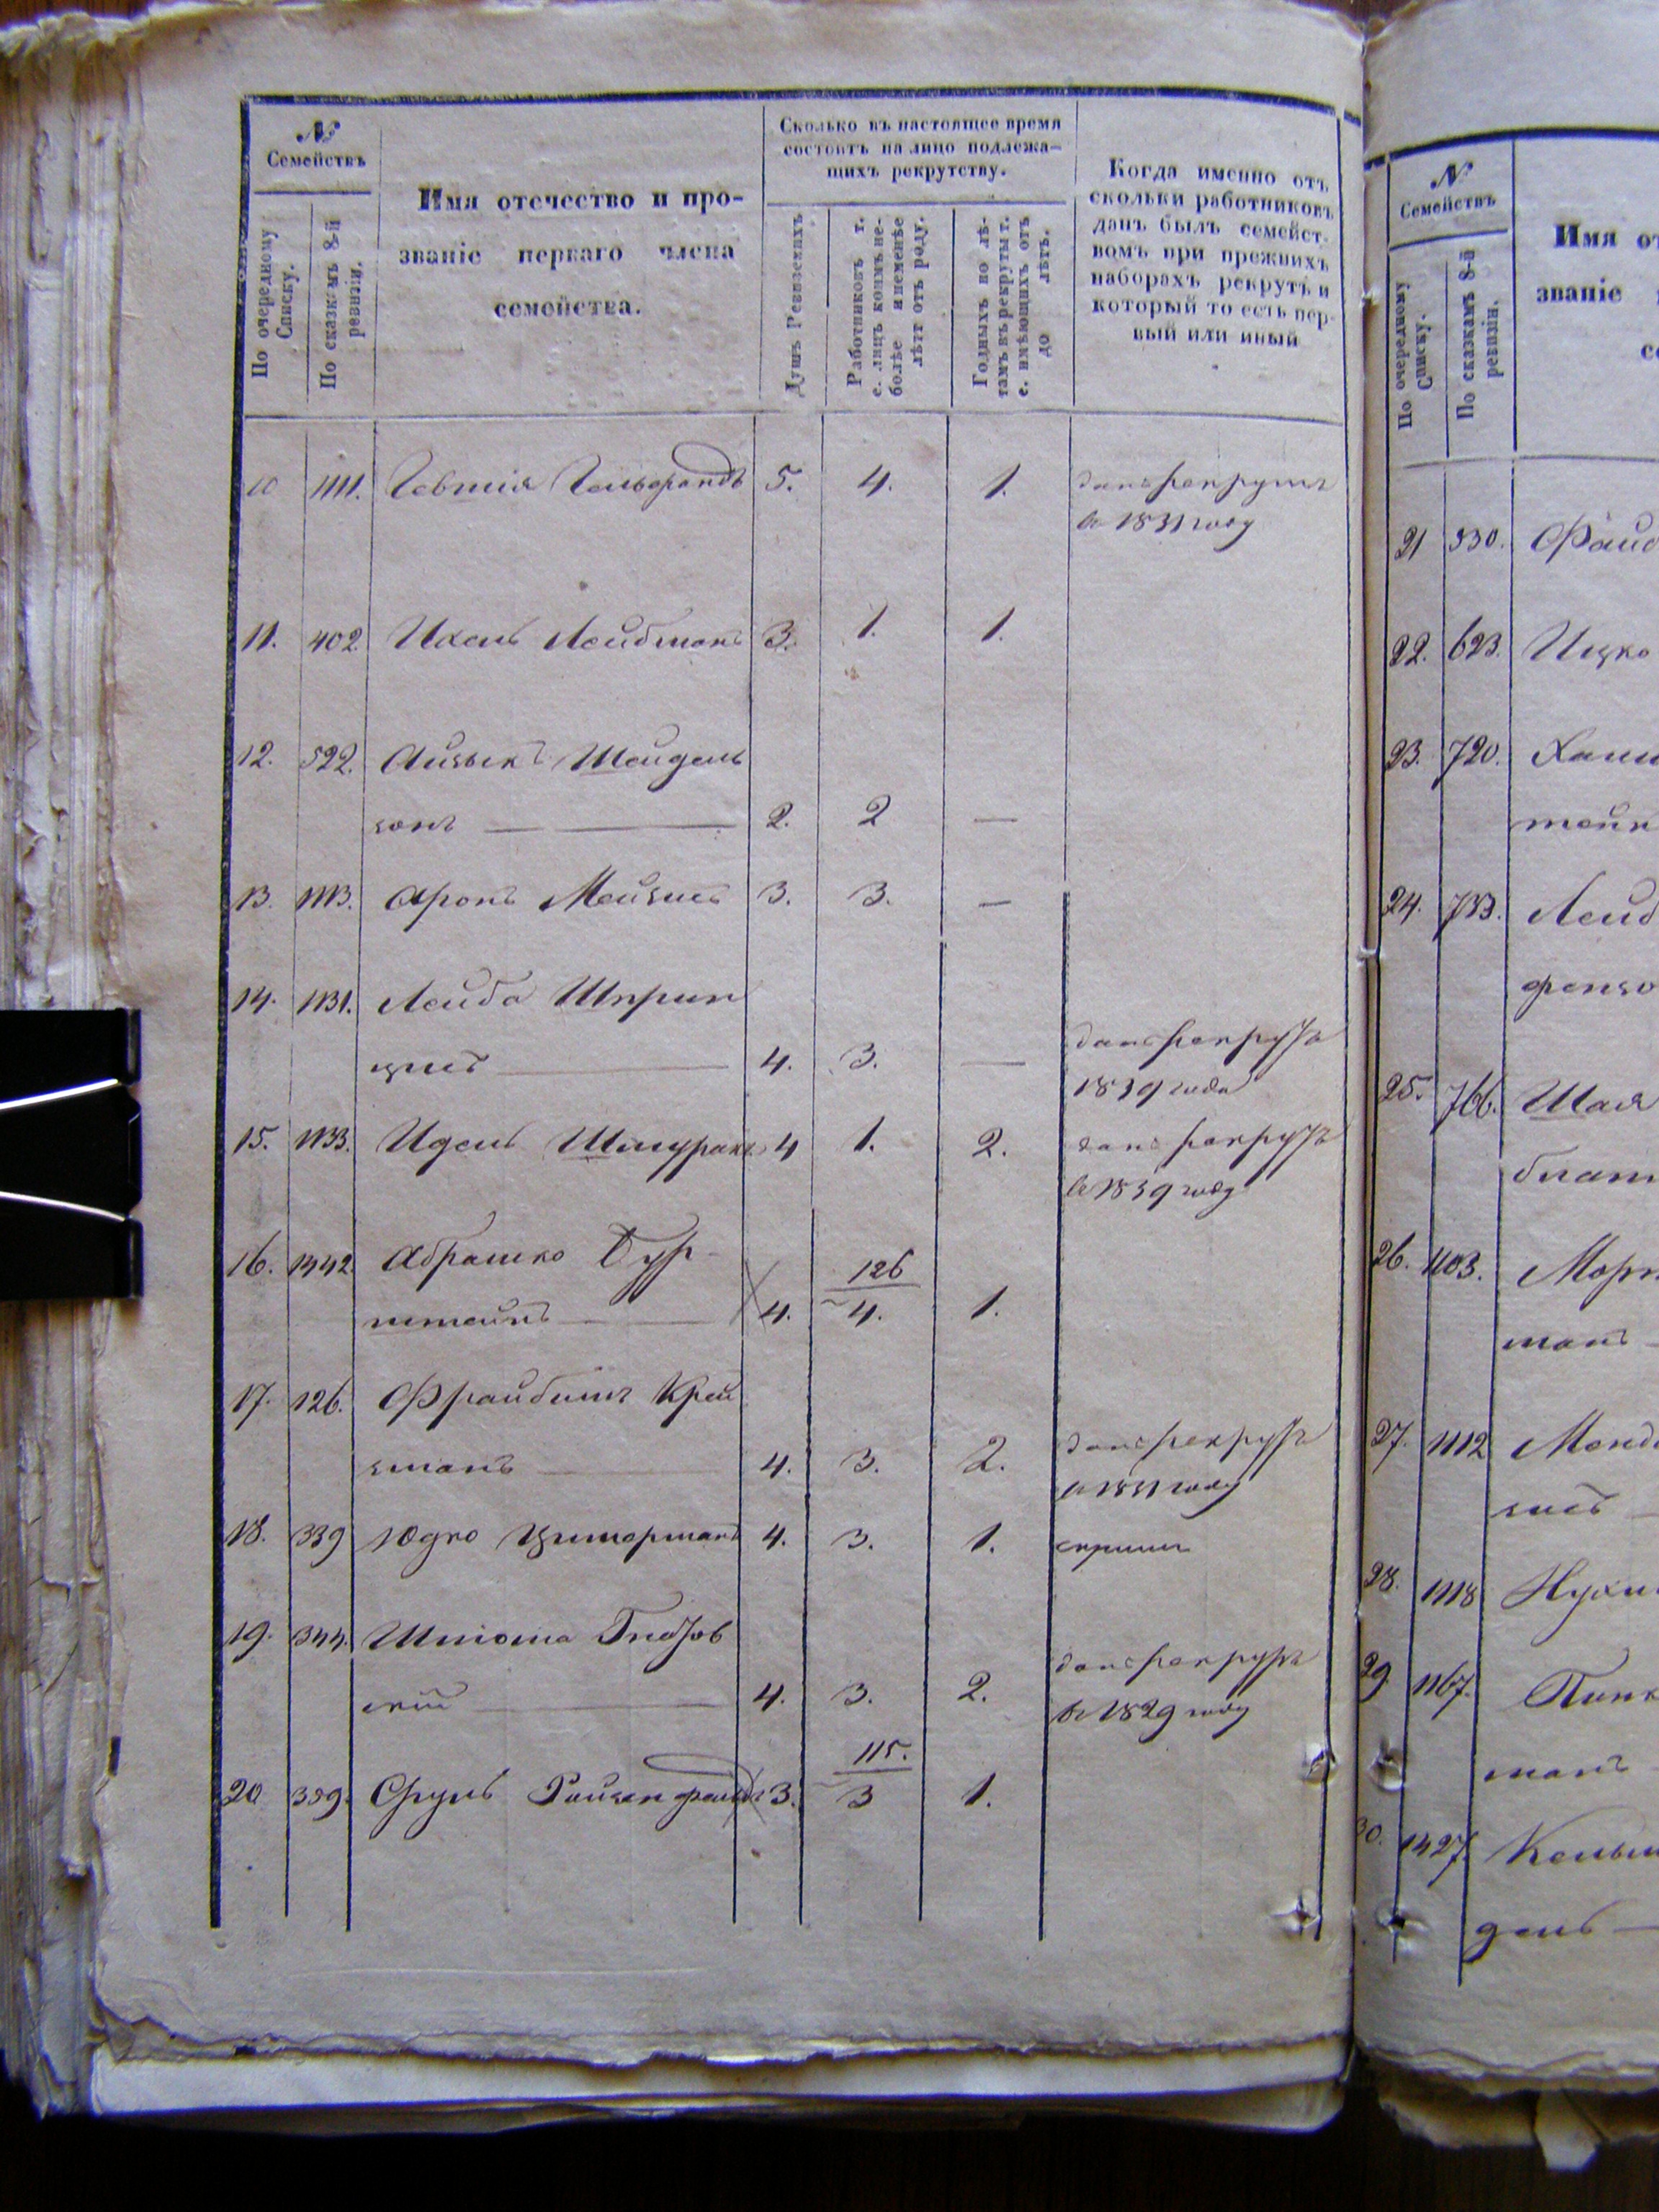 №
Семействъ
По очередному
Списку.
По сказкамъ 8-й
ревизіи.
Имя отечество и про-
званіе перваго члена
семейства.
Сколько въ настоящее время
состоитъ на лицо подлежа-
щихъ рекрутству.
Душъ Ревизскихъ
Работниковъ т.
е. лицъ коимъ не-
болѣе и неменѣе
лѣтъ отъ роду.
Годныхъ по лѣ-
тамъ въ рекруты т.
е. имѣющихъ отъ
до лѣтъ.
Когда именно отъ
скольки работниковъ
данъ былъ семейст-
вомъ при прежнихъ
наборахъ рекрутъ и
который то есть пер-
вый или иный
10 1111. Гельфандъ 5. 4. 1. данъ рекрутъ
въ 1831 году
11. 402 Ихель Лейбманъ 3. 1. 1.
12. 522. Айзыкъ Шейдель
зонъ 2. 2 —
13. 1113. Аронъ Мейзис 3. 3. —
14. 1131. Лейба Шприн
цис 4. 3. — данъ рекрутъ
1839 года
15. 1133. Идель Шмуракъ 4 1. 2. данъ рекрутъ
въ 1839 году
16. 1442 Абрашко Бур-
штейнъ 4. 126
4. 1.
17. 126. Фрайбишъ Крей
зманъ 4. 3. 2. данъ рекрутъ
въ 1831 году
18. 339 Юдко Цимерманъ 4. 3. 1.
19. 344. Шлиома
скій 4. 3. 2. данъ рекрутъ
въ 1829 году
20 359. Сруль 3. 115.
3 1.
№
Семействъ
По очередному
Списку.
По сказкамъ 8-й
ревизіи.
Имя от
званіе
се
21 330.
22. 623. Ицко
23. 720. Хаим
24. 753. Лейб
25. 766. Шая
блат
26. 1103.
ман
27. 1112
28. 1118 Нухи
29. 1167. Пинк
ман
30. 1427. Кельм
дель